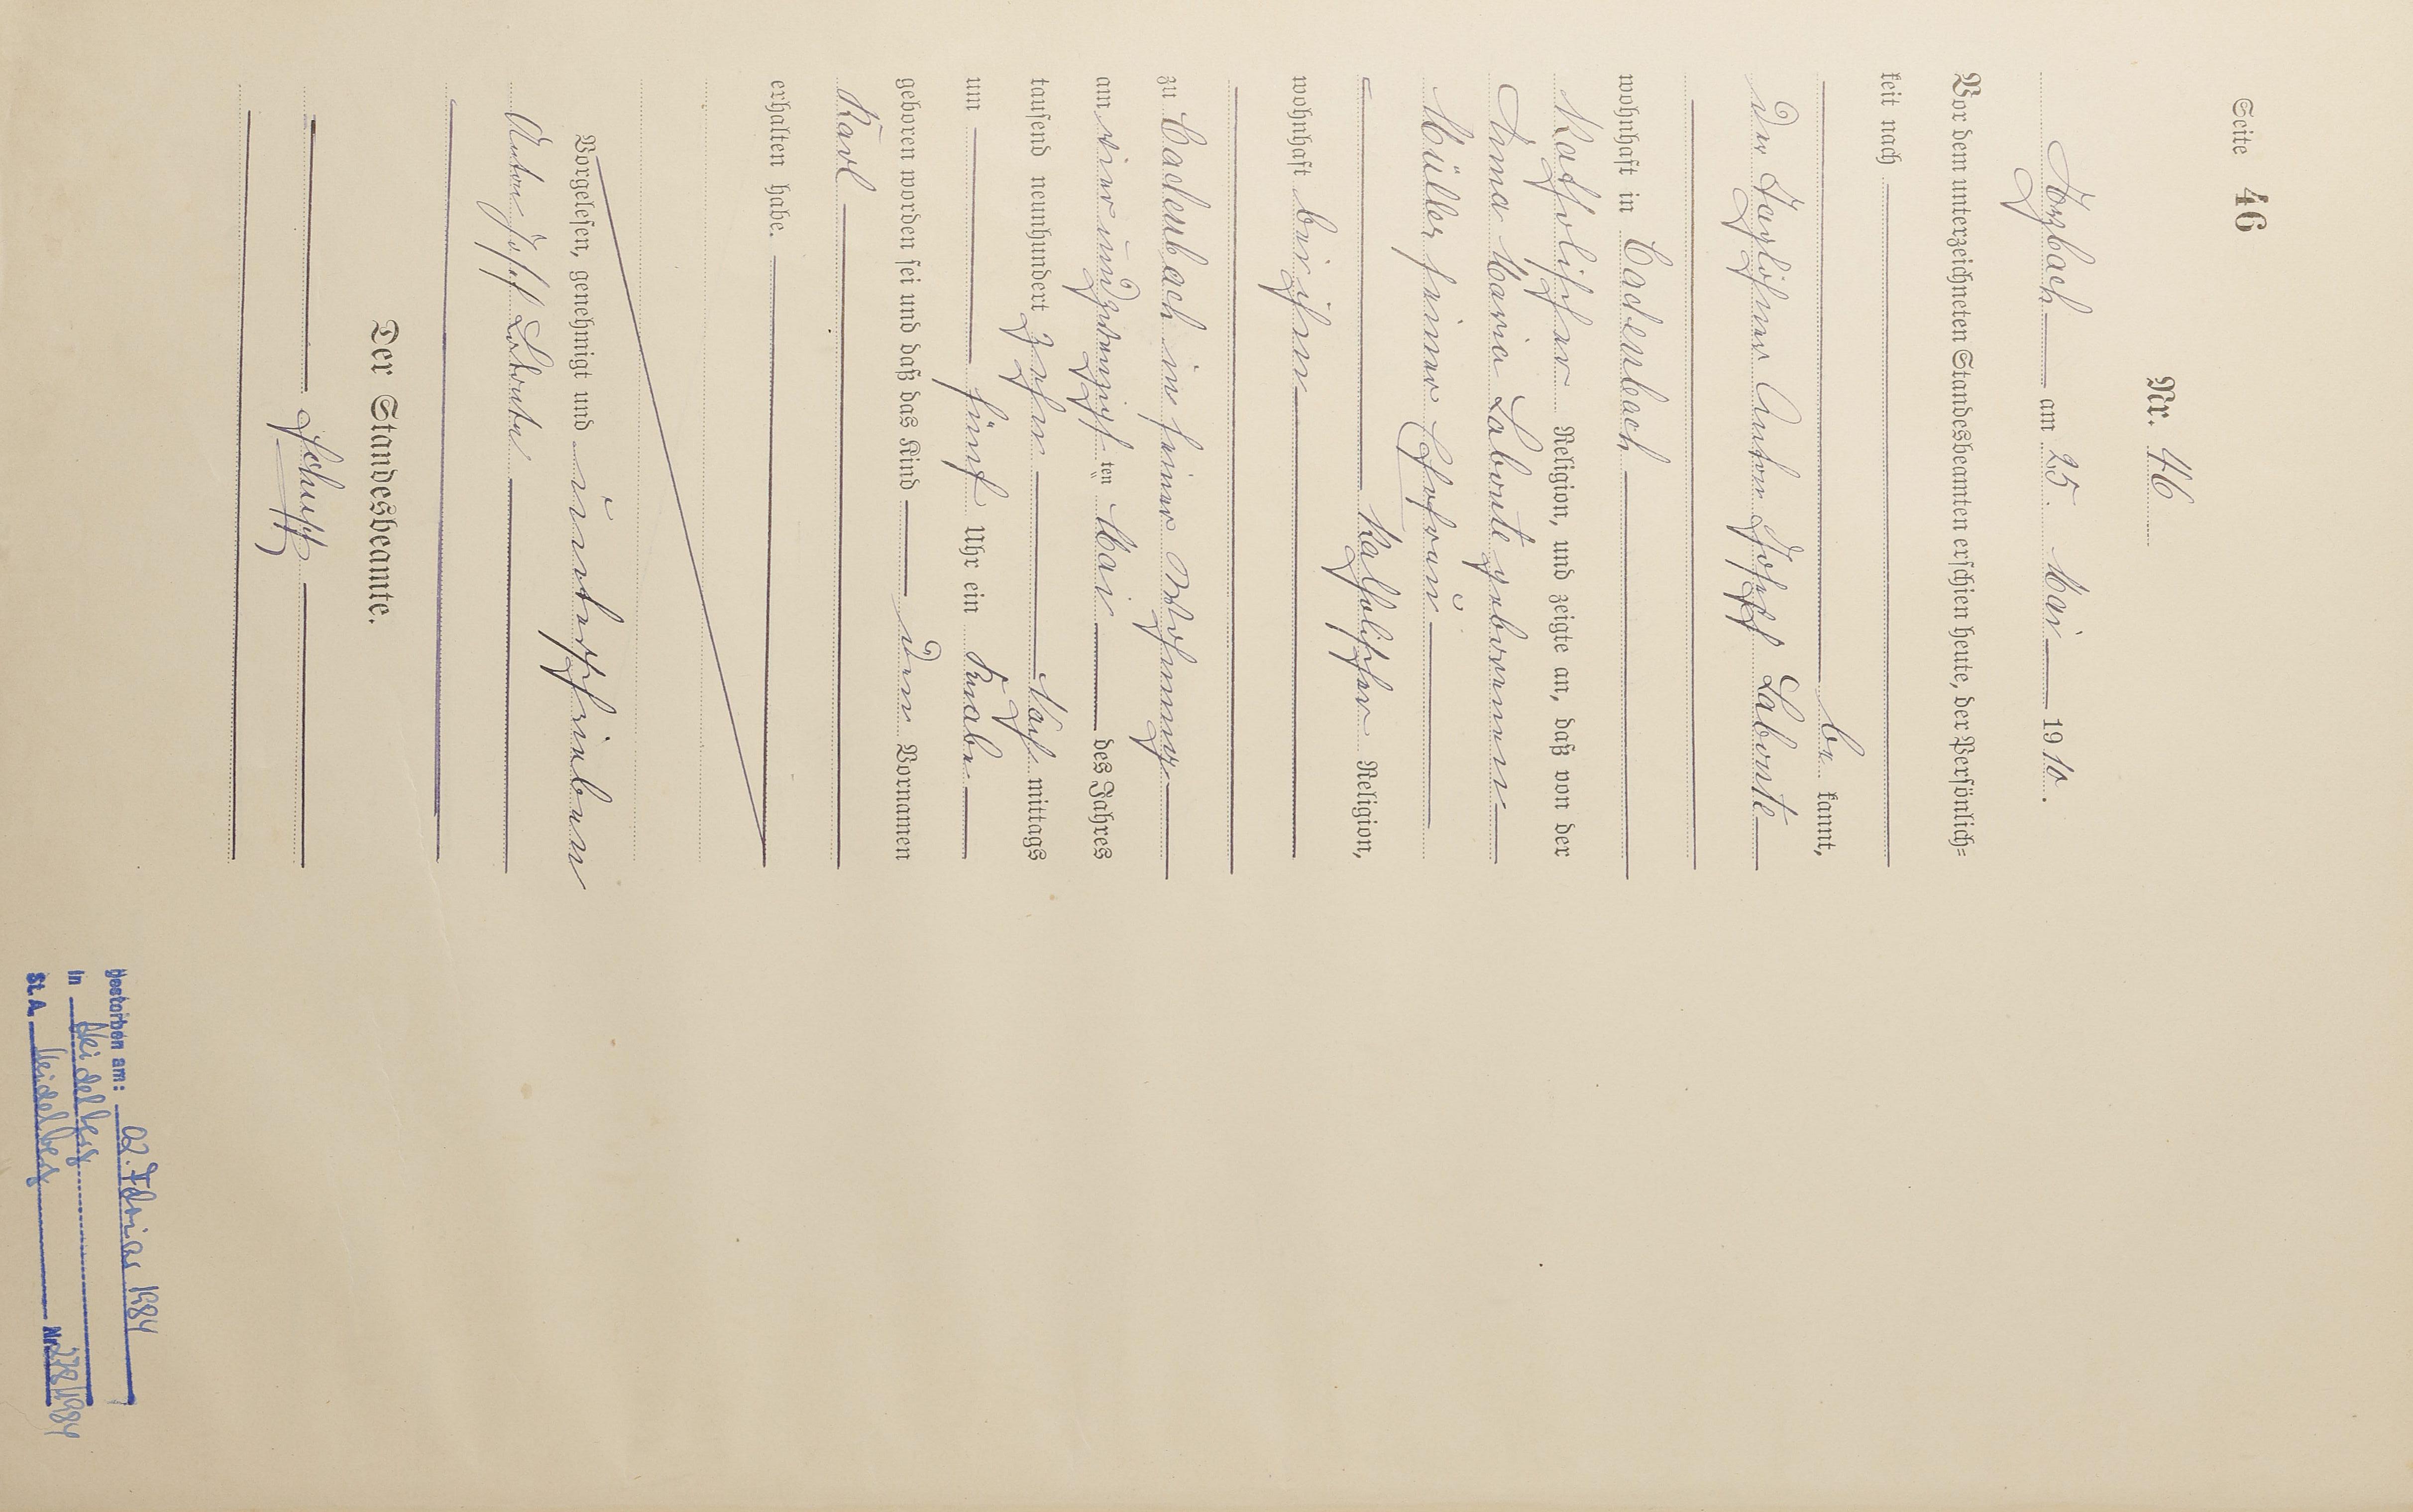 Seite 46
Nr. 46
am 25. Mai 1910.
Vor dem unterzeichneten Standesbeamten erschien heute, der Persönlich=
keit nach
be kannt,
der Taglöhner Anton Joseph Laborte
wohnhaft in Cadenbach
Katholischer Religion, und zeigte an, daß von der
Anna Maria Laborte geborenen
Müller seiner Ehefrau
Katholischer Religion,
wohnhaft bei ihm
zu Cadenbach in seiner Wohnung
am vier und zwanzigsten Mai des Jahres
tausend neunhundert zehn Nach mittags
um fünf Uhr ein Knabe
geboren worden sei und daß das Kind den Vornamen
Karl
erhalten habe.
Vorgelesen, genehmigt und unterschrieben
Anton Josef Laborte
Der Standesbeamte.
gestorben am: 02. Februar 1984
in Heidelberg
St. A. Heidelberg Nr. 278/1984